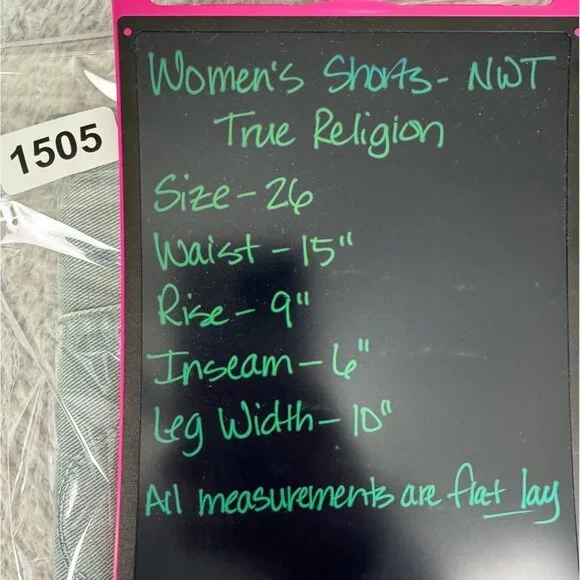 Women's Shorts - NWT
True Religion
1505
Size - 26
Waist - 15"
Rise - 9"
Inseam - 6"
Leg Width - 10"
All measurements are flat lay